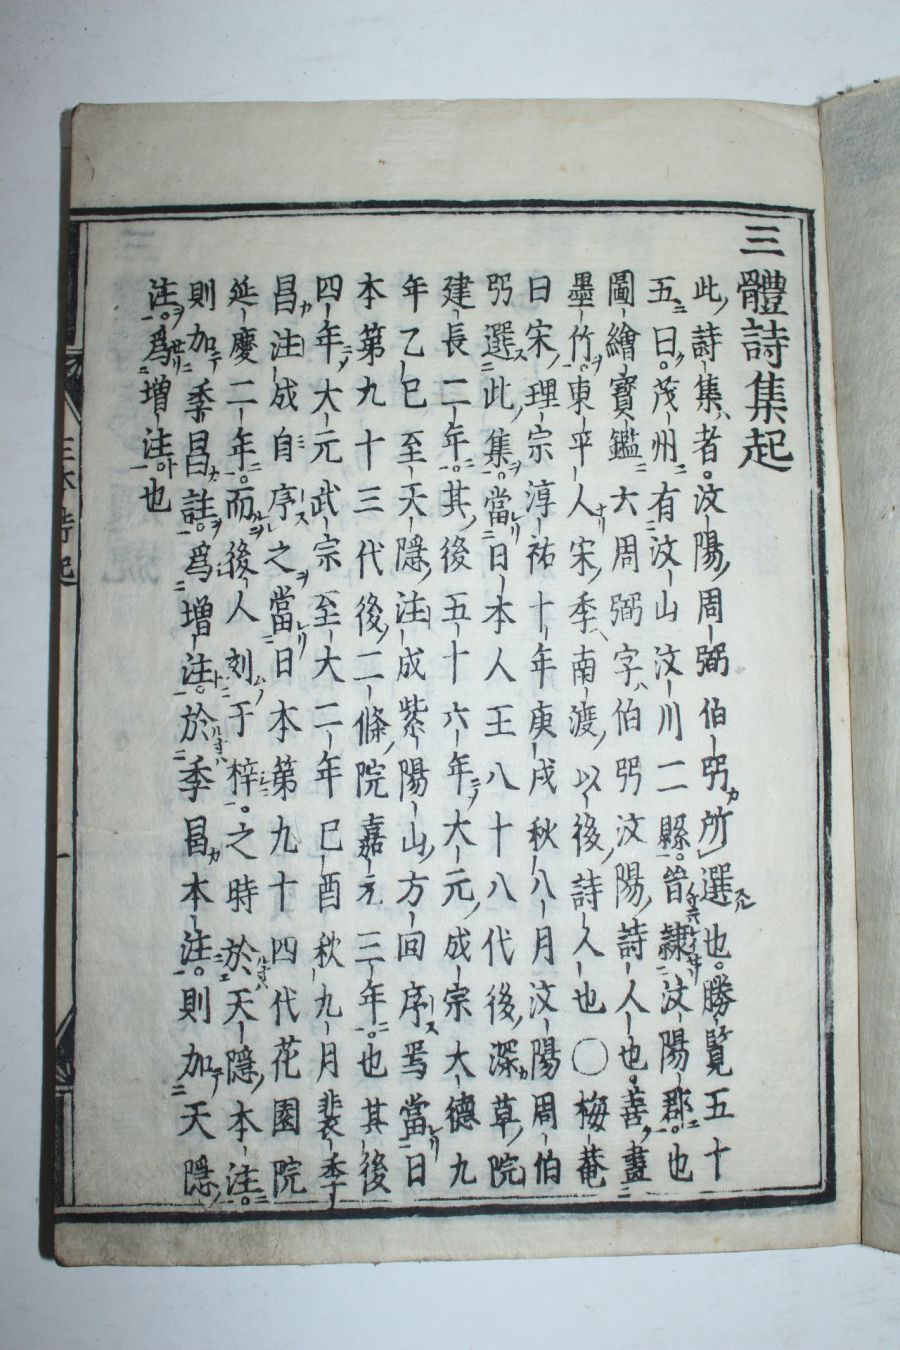 三體詩集起
此詩集者。汶陽周弼伯弜所選也。勝覽五十
五曰。茂州有汶山汶川二縣。晉隷汶陽郡。也
圖繪寶鑑大周弼字伯弜汶陽詩人也。善畫
墨竹。東平人宋季南渡以後詩人也〇梅菴
曰宋理宗淳祐十年庚戌秋八月汶陽周伯
弜選此集。當日本人王八十八代後深草院
建長二年。其後五十六年大元成宗大德九
年乙巳至天隱注成紫陽山方回序焉當日
本第九十三代後二條院嘉元三年。也其後
四年大元武宗至大二年巳酉秋九月裴季
昌注成自序之當日本第九十四代花園院
延慶二年。而後人刻于梓。之時於天隱本注。
則加季昌註。爲增注。於季昌本注。則加天隱
注。爲增注。也
三本詩起
一